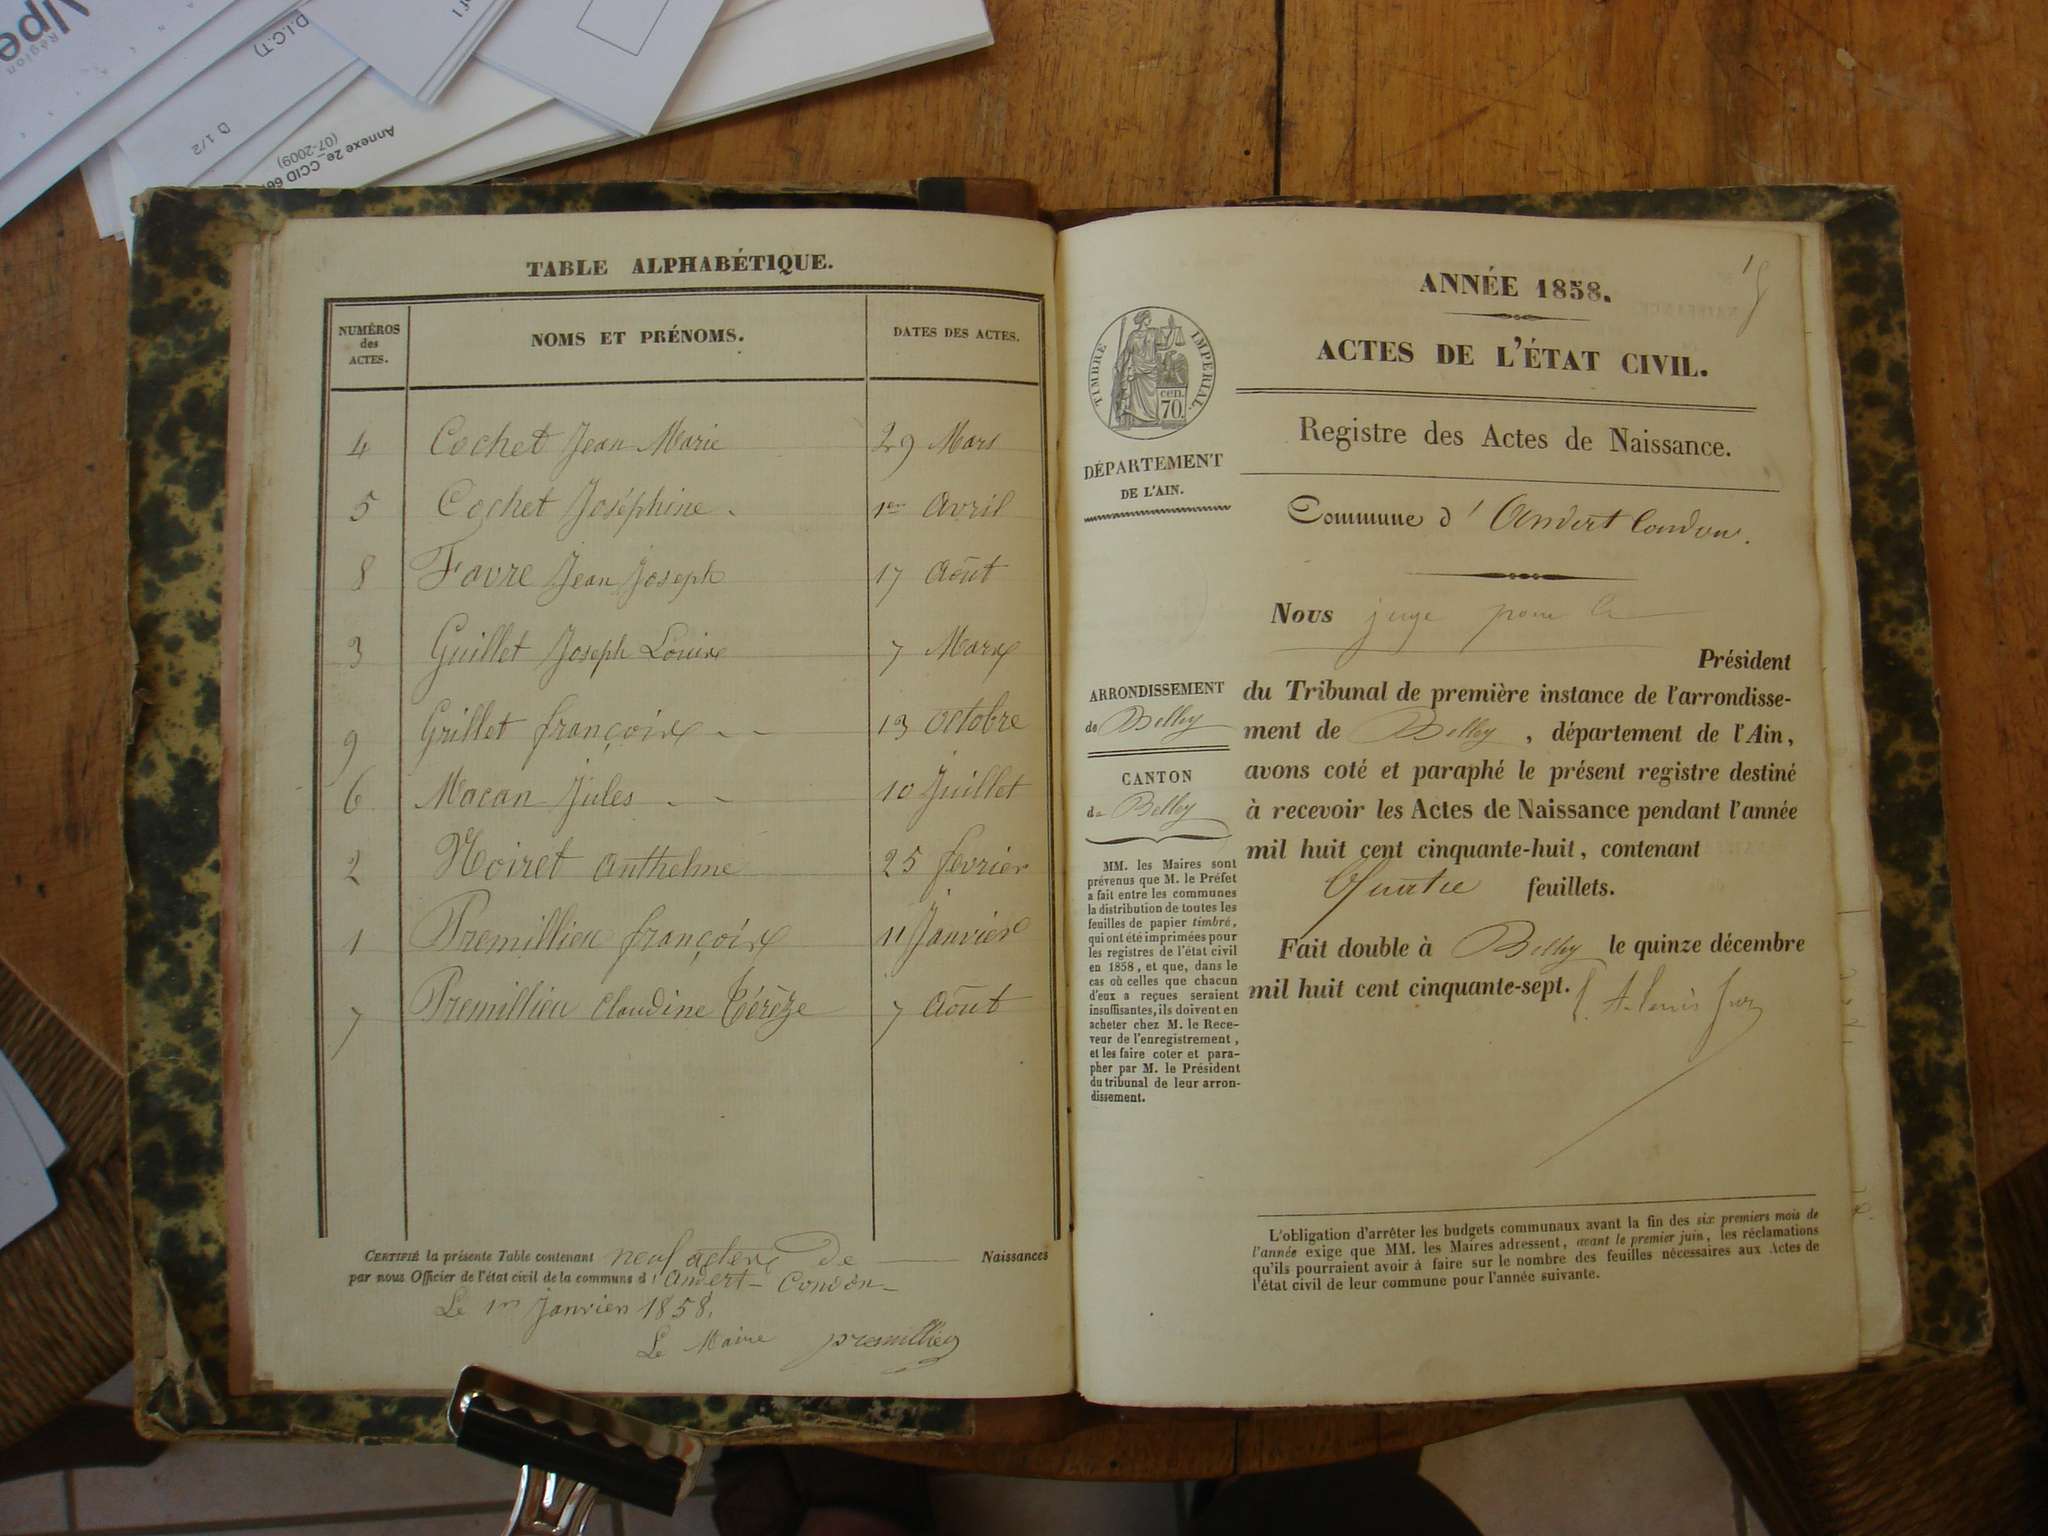 Alpe
Région
D.I.C.T)
D 1/2
Annexe 2e_CCID 66
(07-2009)
TABLE ALPHABÉTIQUE.
NUMÉROS des ACTES. NOMS ET PRÉNOMS. DATES DES ACTES.
4 Cochet Jean Marie 29 Mars
5 Cochet Joséphine 1er Avril
8 Favre Jean Joseph 17 Août
3 Guillet Joseph Louis 7 Mars
9 Grillet françois 13 octobre
6 Macan Jules 10 Juillet
2 Noiret Anthelme 25 fevrier
1 Premillieu françois 11 Janvier
7 Premillieu Claudine Térèze 7 Août
CERTIFIÉ la présente Table contenant neuf actes de Naissances
par nous Officier de l'état civil de la commune d'Andert-Condon
Le 1er Janvier 1858.
Le Maire premillieu
ANNÉE 1858.
ACTES DE L'ÉTAT CIVIL.
Registre des Actes de Naissance.
TIMBRE IMPERIAL
cen.
70.
DÉPARTEMENT
DE L'AIN.
Commune d'Andert Condon.
Nous juge pour le
Président
du Tribunal de première instance de l'arrondisse-
ment de Belley, département de l'Ain,
avons coté et paraphé le présent registre destiné
à recevoir les Actes de Naissance pendant l'année
mil huit cent cinquante-huit, contenant
feuillets.
Fait double à Belley le quinze décembre
mil huit cent cinquante-sept.
ARRONDISSEMENT
de Belley
CANTON
de Belley
MM. les Maires sont
prévenus que M. le Préfet
a fait entre les communes
la distribution de toutes les
feuilles de papier timbré,
qui ont été imprimées pour
les registres de l'état civil
en 1858, et que, dans le
cas où celles que chacun
d'eux a reçues seraient
insuffisantes, ils doivent en
acheter chez M. le Rece-
veur de l'enregistrement,
et les faire coter et para-
pher par M. le Président
du tribunal de leur arron-
dissement.
L'obligation d'arrêter les budgets communaux avant la fin des six premiers mois de
l'année exige que MM. les Maires adressent, avant le premier juin, les réclamations
qu'ils pourraient avoir à faire sur le nombre des feuilles nécessaires aux Actes de
l'état civil de leur commune pour l'année suivante.